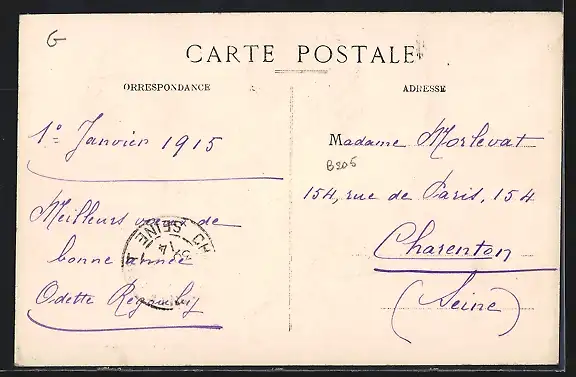 G
CARTE POSTALE
ORRESPONDANCE
ADRESSE
1º Janvier 1915
Meilleurs vœux de
bonne année
Odette
Madame Morlevat
B205
154, rue de Paris, 154
Charenton
(Seine)
CH
SEINE